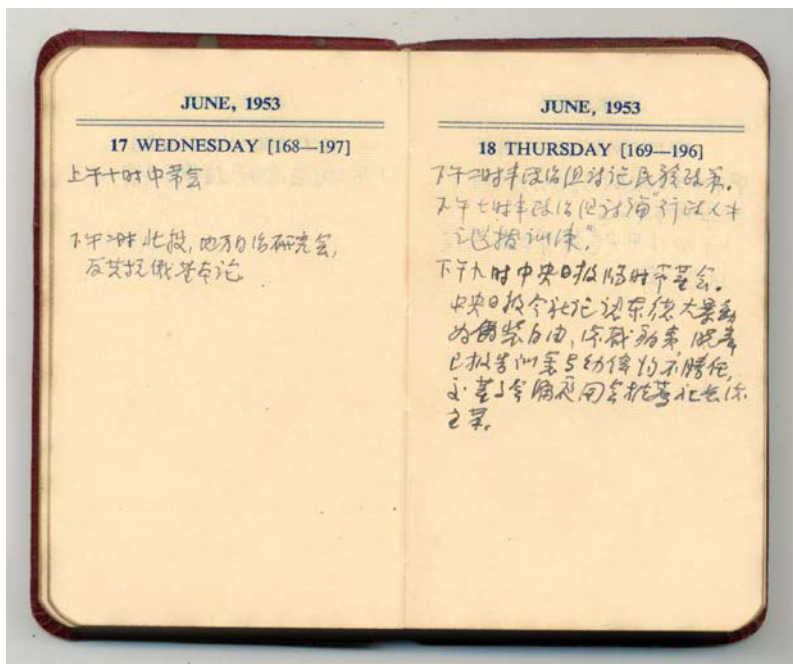 JUNE, 1953
17 WEDNESDAY [168—197]
上午十时中常会
下午二时北投,地方自治研究会,
反共抗俄基本论
JUNE, 1953
18 THURSDAY [169—196]
下午二时半政治组讨论民族政策。
下午七时半政治组讨论“行政人才
之选拔训练”
下午九时中央日报临时常董会。
中央日报今社论认东德大暴动
为伪装自由,总裁
已报告训 与幼伟均不胜任,
董 会 推荐社长
主菜。